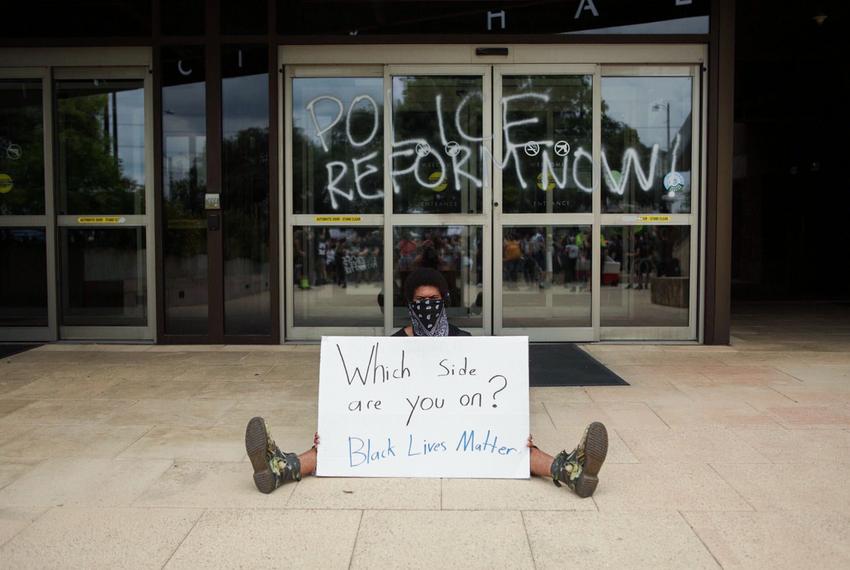 H A L
C I
POLICE
REFORM NOW!
ENTRANCE
ENTRANCE
Which Side
are you on?
Black Lives Matter